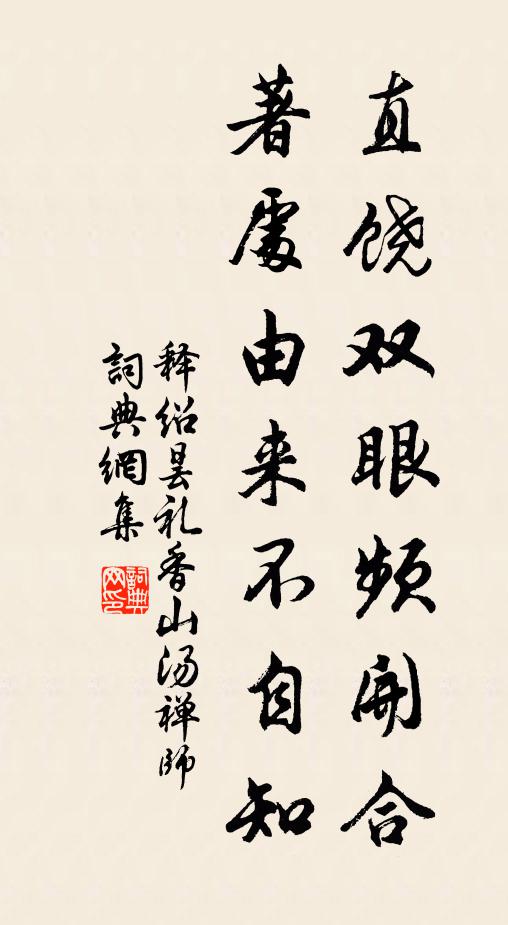 直饶双眼频开合
著處由来不自知
释绍昙礼香山汤禅師
詞典網集
詞典网印